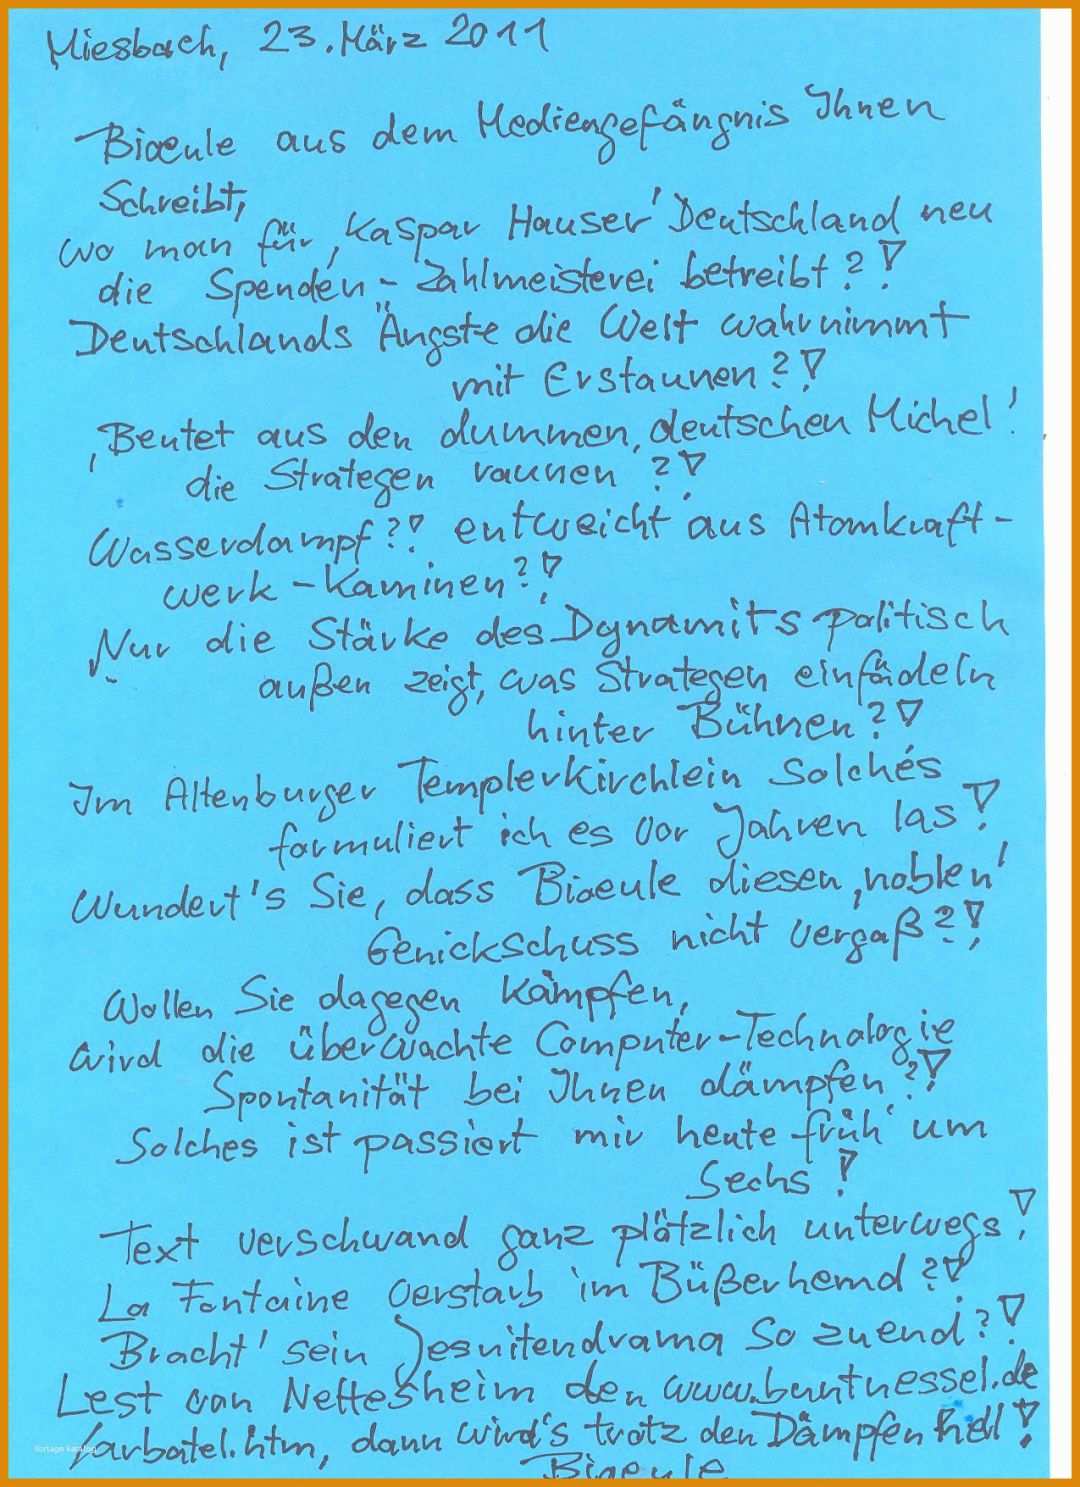 Miesbach, 23. März 2011
Bioeule aus dem Mediengefängnis Ihnen
Schreibt,
wo man für ‚Kaspar Hauser' Deutschland neu
die Spenden-Zahlmeisterei betreibt?!
Deutschlands Ängste die Welt wahrnimmt
mit Erstaunen?!
‚Beutet aus den dummen, deutschen Michel'
die Strategen raunen?!
Wasserdampf?! entweicht aus Atomkraft-
werk-Kaminen?!
Nur die Stärke des Dynamits politisch
außen zeigt, was Strategen einfädeln
hinter Bühnen?!
Im Altenburger Templerkirchlein solches
formuliert ich es vor Jahren las!
Wundert's Sie, dass Bioeule diesen ‚noblen'
Genickschuss nicht vergaß?!
Wollen Sie dagegen kämpfen,
wird die überwachte Computer-Technologie
Spontanität bei Ihnen dämpfen?!
Solches ist passiert mir heute früh um
Sechs!
Text verschwand ganz plötzlich unterwegs!
La Fontaine verstarb im Büßerhemd?!
Bracht' sein Jesuitendrama so zuend?!
Lest von Nettesheim den www.buntnessel.de
/arbatel.htm, dann wird's trotz den Dämpfen hell!
Bioeule
vorlage katalog